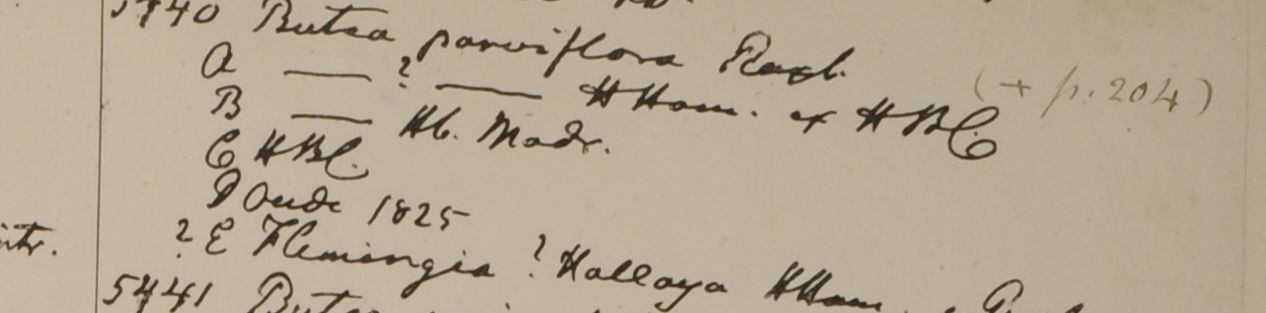 5440 Butea parviflora Roxb.
A —— ? —— HHam. ex HBC (+ p. 204)
B —— Hb. Madr.
C HBC.
D Oude 1825
? E Flemingia ? Hallaya HHam
5441 Butea